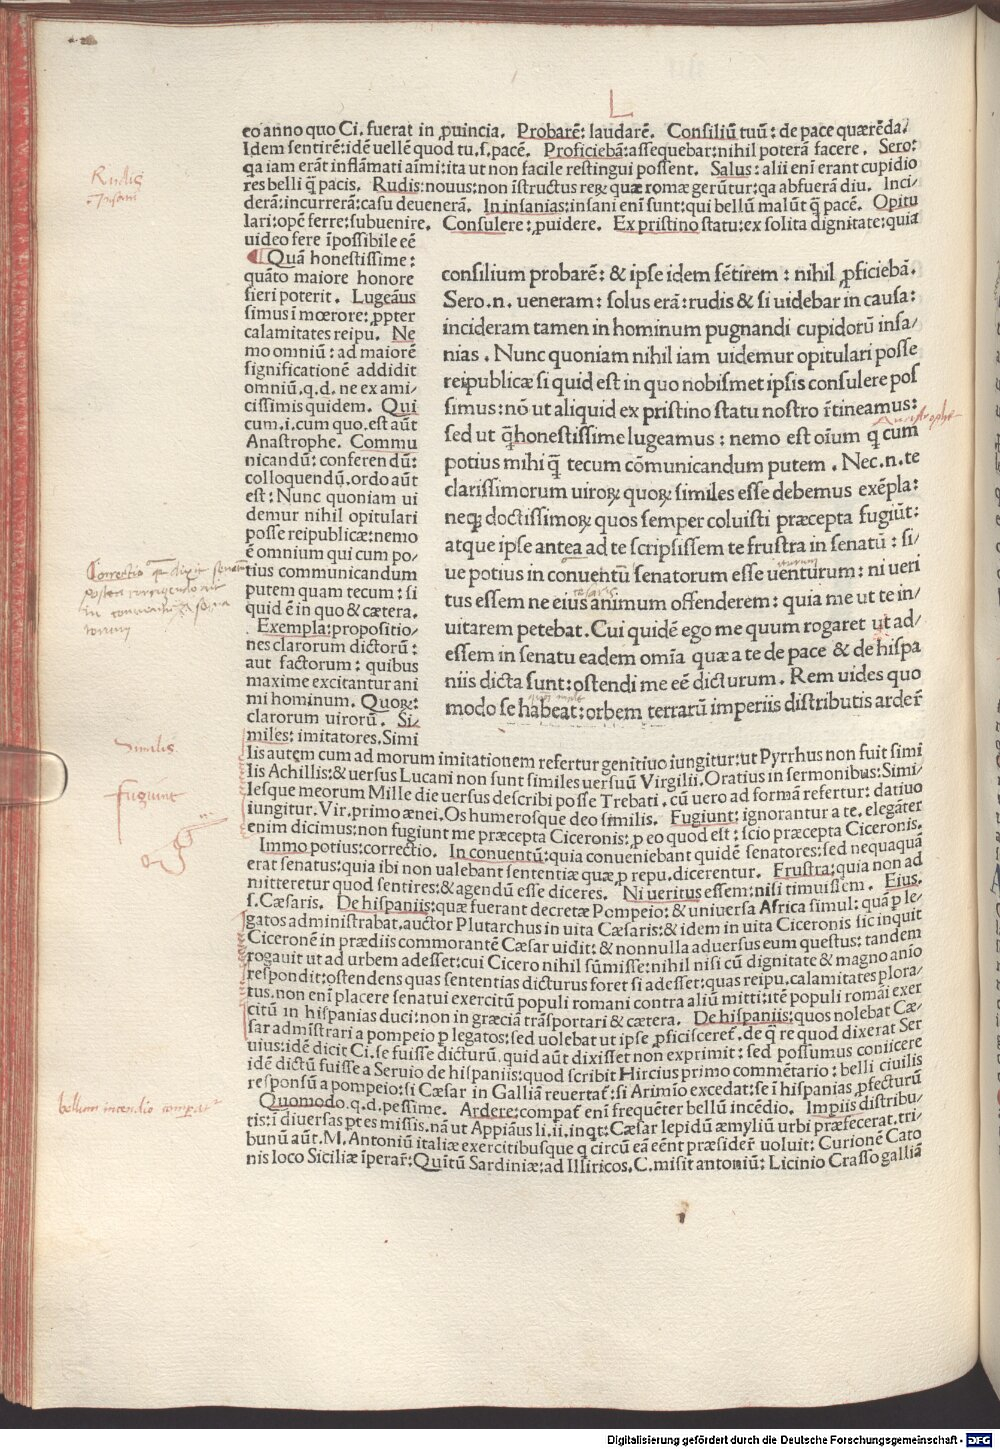 L
eo anno quo Ci. fuerat in ꝓuincia. Probarē: laudarē. Consiliū tuū: de pace quærēda.
Idem sentirē: idē uellē quod tu, s. pacē. Proficiebā: assequebar: nihil poterā facere. Sero:
qa iam erāt inflāmati aīmi: ita ut non facile restingui possent. Salus: alii enī erant cupidio
res belli q̄ pacis. Rudis: nouus: non īstructus reꝝ quæ romæ gerūtur: qa abfuerā diu. Inci/
derā: incurrerā: casu deuenerā. In insanias: insani enī sunt: qui bellū malūt q̄ pacē. Opitu
lari: opē ferre: subuenire. Consulere: ꝓuidere. Ex pristino statu: ex solita dignitate: quia
uideo fere īpossibile eē
Rudis
Insani
Quā honestissime:
quāto maiore honore
fieri poterit. Lugeāus
simus ī mœrore: ꝓpter
calamitates reipu. Ne
mo omniū: ad maiorē
significationē addidit
omniū. q.d. ne ex ami/
cissimis quidem. Qui
cum. i. cum quo. est aūt
Anastrophe. Commu
nicandū: conferendū:
colloquendū. ordo aūt
est: Nunc quoniam ui
demur nihil opitulari
posse reipublicæ: nemo
ē omnium qui cum po/
tius communicandum
putem quam tecum: si
quid ē in quo & cætera.
Exempla: propositio/
nes clarorum dictorū:
aut factorum: quibus
maxime excitantur ani
mi hominum. Quoꝝ:
clarorum uirorū. Si/
miles: imitatores. Simi
consilium probarē: & ipse idem sētirem: nihil ꝓficiebā.
Sero .n. ueneram: solus erā: rudis & si uidebar in causa:
incideram tamen in hominum pugnandi cupidorū insa/
nias. Nunc quoniam nihil iam uidemur opitulari posse
reipublicæ si quid est in quo nobismet ipsis consulere pos
simus: nō ut aliquid ex pristino statu nostro ītineamus:
Anastrophe
sed ut q̄ honestissime lugeamus: nemo est oīum q cum
potius mihi q̄ tecum cōmunicandum putem. Nec .n. te
clarissimorum uiroꝝ quoꝝ similes esse debemus exēpla:
neqꝫ doctissimoꝝ quos semper coluisti præcepta fugiūt:
atque ipse antea ad te scripsissem te frustra in senatū: si/
ue potius in conuentū senatorum esse uenturum: ni ueri
iturum
tus essem ne eius animum offenderem: quia me ut te in/
cæsaris
uitarem petebat. Cui quidē ego me quum rogaret ut ad/
essem in senatu eadem omīa quæ a te de pace & de hispa
niis dicta sunt: ostendi me eē dicturum. Rem uides quo
modo se habeat: orbem terrarū imperiis distributis arder̄
Correctio
Similis
fugiunt
lis autem cum ad morum imitationem refertur genitiuo iungitur: ut Pyrrhus non fuit simi
lis Achillis: & uersus Lucani non sunt similes uersuū Virgilii. Oratius in sermonibus: Simi/
lesque meorum Mille die uersus describi posse Trebati. cū uero ad formā refertur: datiuo
iungitur. Vir. primo ænei. Os humerosque deo similis. Fugiunt: ignorantur a te. elegāter
enim dicimus: non fugiunt me præcepta Ciceronis: p eo quod est: scio præcepta Ciceronis.
Immo potius: correctio. In conuentū: quia conueniebant quidē senatores: sed nequaquā
erat senatus: quia ibi non ualebant sententiæ quæ ꝓ repu. dicerentur. Frustra: quia non ad
mitteretur quod sentires: & agendū esse diceres. Ni ueritus essem: nisi timuissem. Eius.
s. Cæsaris. De hispaniis: quæ fuerant decretæ Pompeio: & uniuersa Africa simul: quā p le/
gatos administrabat. auctor Plutarchus in uita Cæsaris: & idem in uita Ciceronis sic inquit
Ciceronē in prædiis commorantē Cæsar uidit: & nonnulla aduersus eum questus: tandem
rogauit ut ad urbem adesset: cui Cicero nihil sūmisse: nihil nisi cū dignitate & magno anīo
respondit: ostendens quas sententias dicturus foret si adesset: quas reipu. calamitates plora/
tus. non enī placere senatui exercitū populi romani contra aliū mitti: itē populi romāi exer
citū in hispanias duci: non in græciā trāsportari & cætera. De hispaniis: quos nolebat Cæ/
sar admīstrari a pompeio p legatos: sed uolebat ut ipse ꝓficisceret̄. de q̄ re quod dixerat Ser
uius: idē dicit Ci. se fuisse dicturū. quid aūt dixisset non exprimit: sed possumus coniicere
idē dictū fuisse a Seruio de hispaniis: quod scribit Hircius primo commētario: belli ciuilis
responsū a pompeio: si Cæsar in Galliā reuertat̄: si Arimīo excedat: se ī hispanias ꝓfecturū
Quomodo. q.d. pessime. Ardere: compat̄ enī frequēter bellū incēdio. Impiis distribu/
tis: ī diuersas ptes missis. nā ut Appiāus li. ii. inqt: Cæsar lepidū æmyliū urbi præfecerat. tri/
bunū aūt. M. Antoniū italiæ exercitibusque q circū eā eēnt præsider̄ uoluit: Curionē Cato
nis loco Siciliæ īperar̄: Quītū Sardiniæ: ad Illiricos. C. misit antoniū: Licinio Crasso galliā
bellum incendio comparat̄
Digitalisierung gefördert durch die Deutsche Forschungsgemeinschaft - DFG